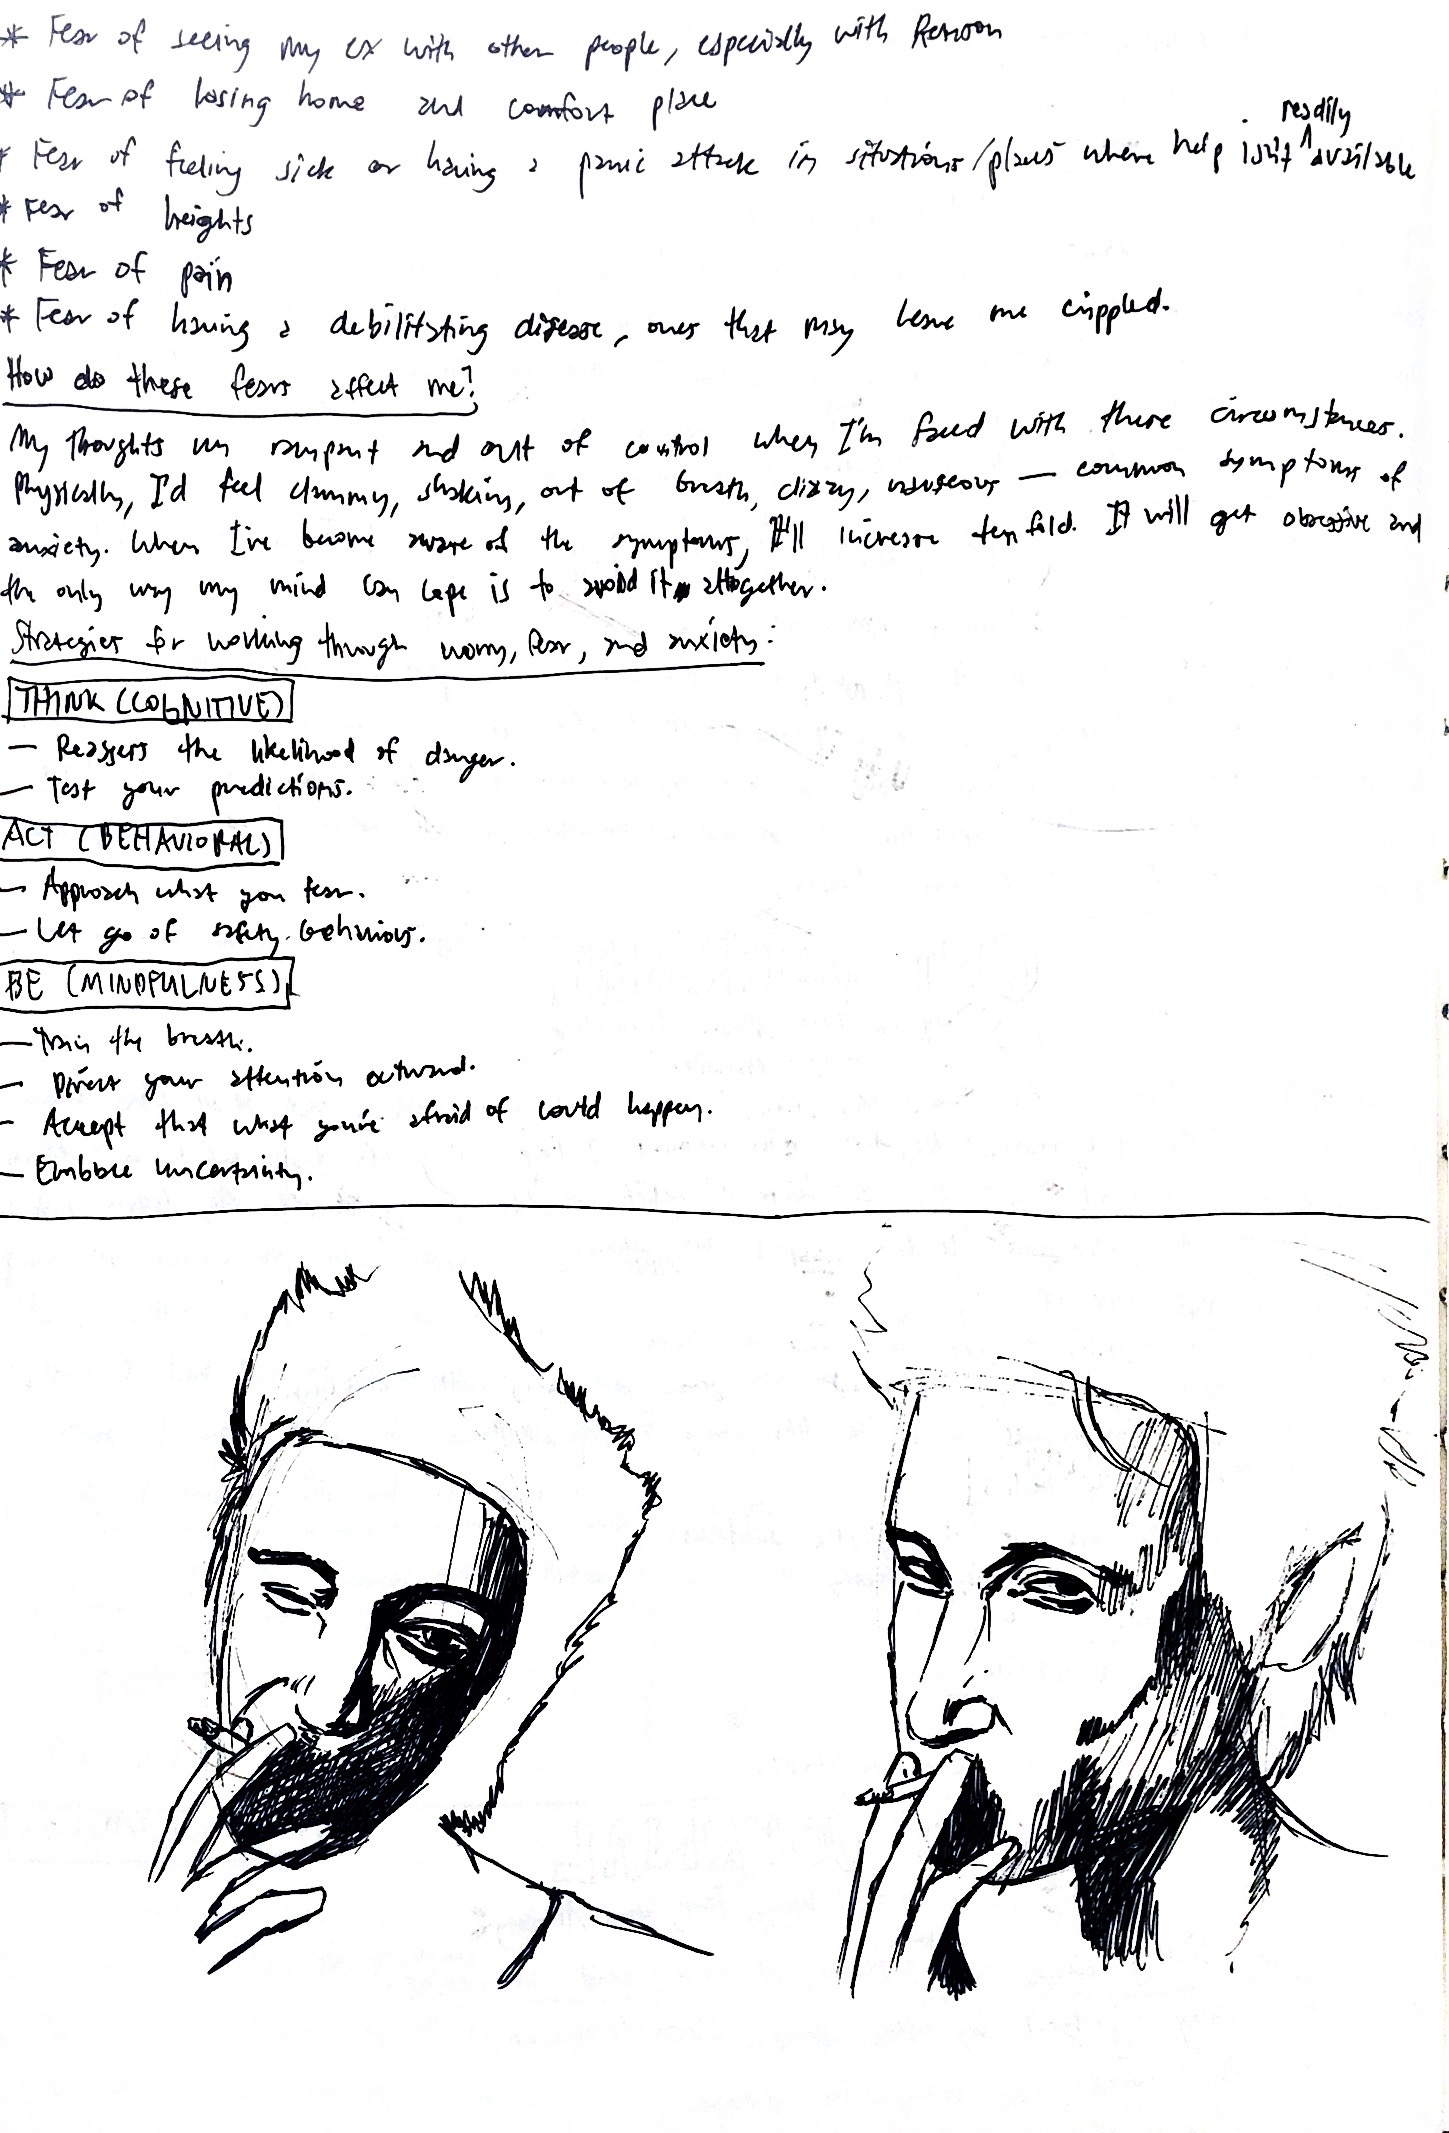 * Fear of seeing my ex with other people, especially with
* Fear of losing home and comfort place
* Fear of feeling sick or having a panic attack in situations/places where help isn't readily available
* Fear of heights
* Fear of pain
* Fear of having a debilitating disease, ones that may leave me crippled.
How do these fears affect me?
My thoughts run rampant and out of control when I'm faced with these circumstances.
Physically, I'd feel clammy, shaking, out of breath, dizzy, nauseous — common symptoms of
anxiety. When I've become aware of the symptoms, It'll increase tenfold. It will get obsessive and
the only way my mind can cope is to avoid it altogether.
Strategies for working through worry, fear, and anxiety:
THINK (COGNITIVE)
— Reassess the likelihood of danger.
— Test your predictions.
ACT (BEHAVIORAL)
— Approach what you fear.
— Let go of safety behaviors.
BE (MINDFULNESS)
— Train the breath.
— Direct your attention outward.
— Accept that what you're afraid of could happen.
— Embrace uncertainty.